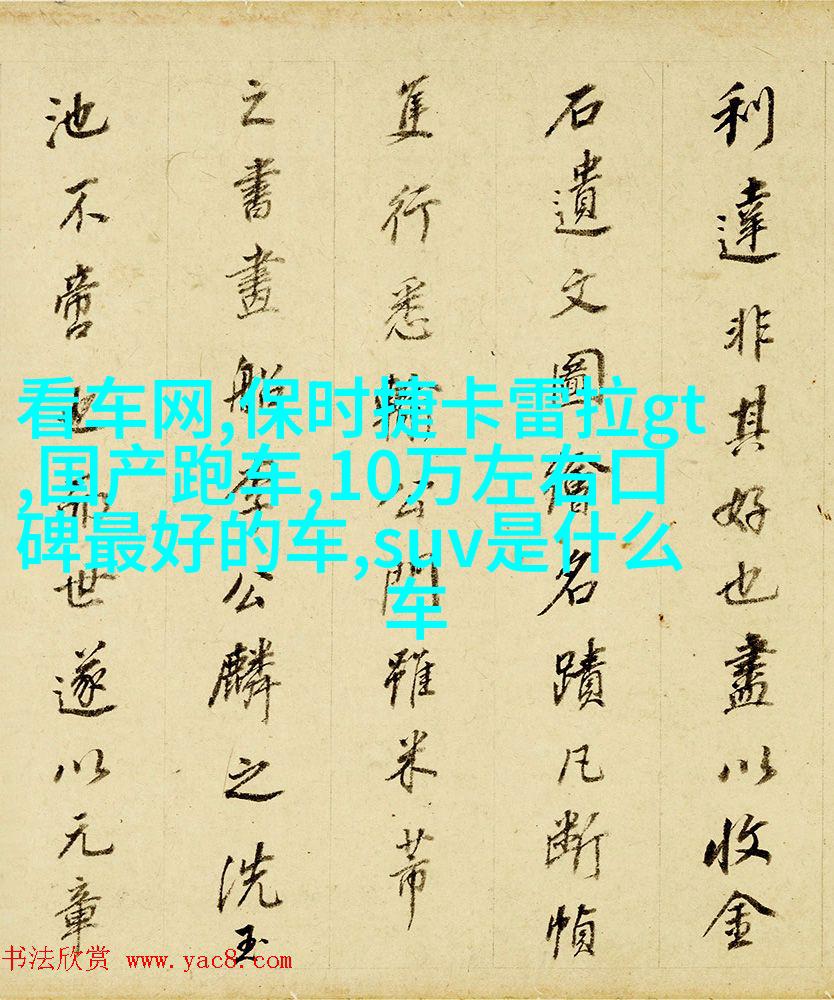 利達非其好也盡以收金
石遺文圖繪名蹟凡斷幀
隻行悉公門雖米芾
之書畫船李公麟之洗玉
池不啻也世遂以元章
看车网,保时捷卡雷拉gt
,国产跑车,10万左右口
碑最好的车,suv是什么
车
书法欣赏 www.yac8.com